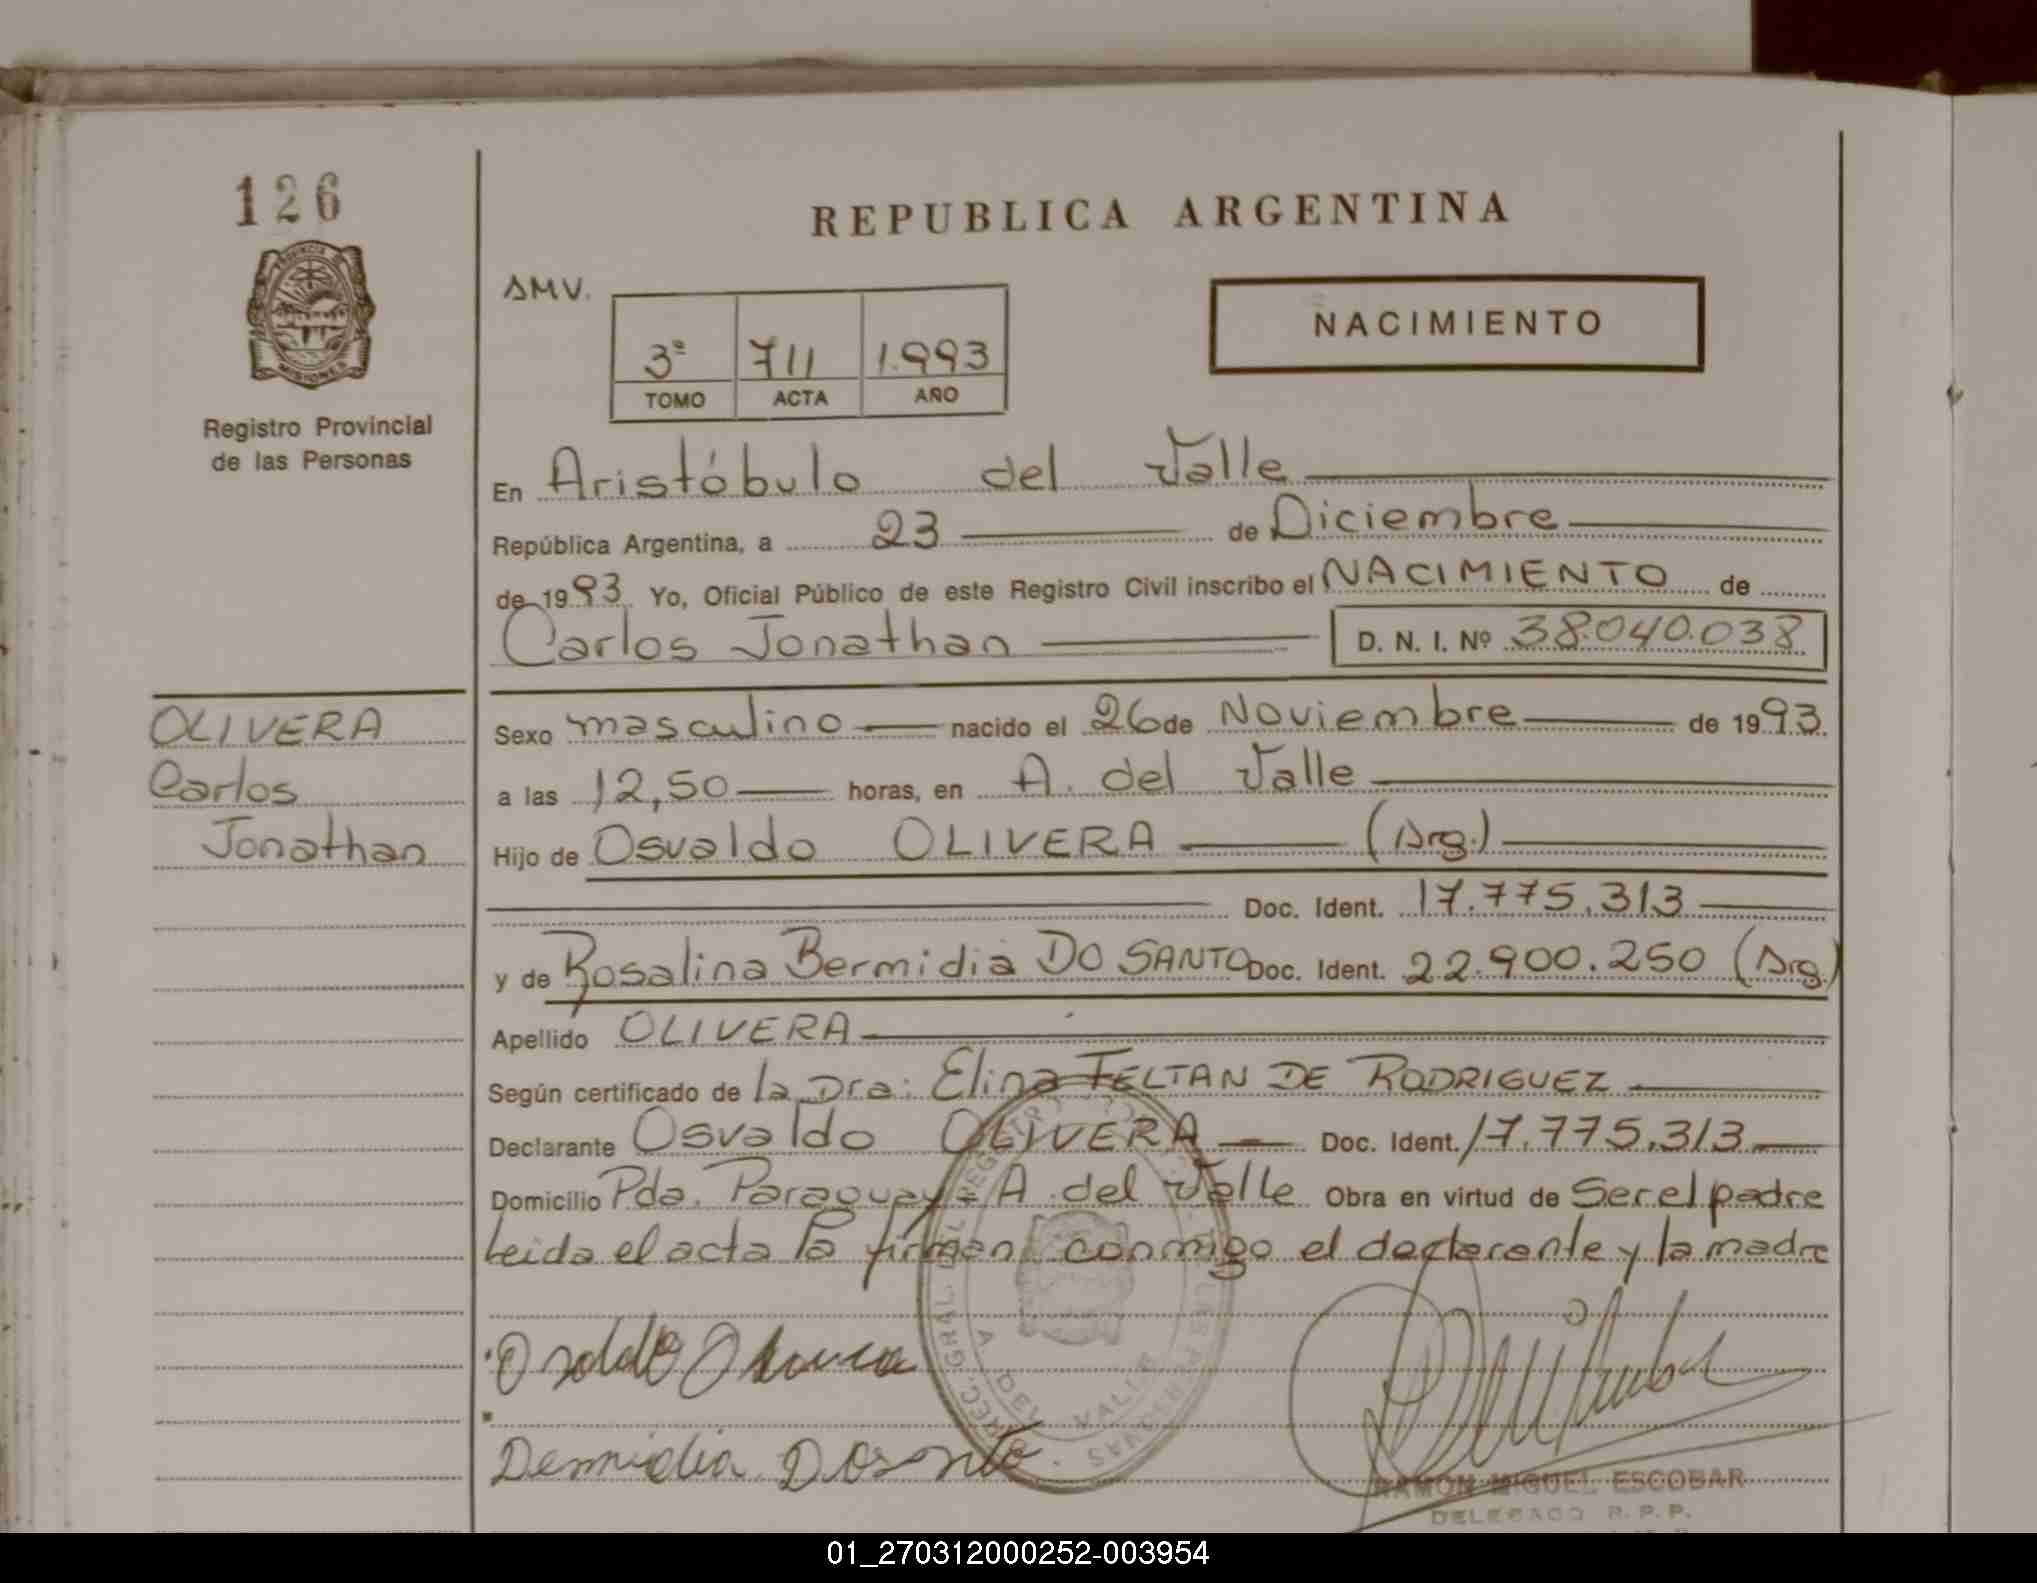 126
PROVINCIA DE
MISIONES
Registro Provincial
de las Personas
OLIVERA
Carlos
Jonathan
REPUBLICA ARGENTINA
SMV.
3º 711 1.993
TOMO ACTA AÑO
NACIMIENTO
En Aristóbulo del Valle
República Argentina, a 23 de Diciembre
de 1993 Yo, Oficial Público de este Registro Civil inscribo el NACIMIENTO de
Carlos Jonathan D. N. I. Nº 38.040.038
Sexo masculino nacido el 26 de Noviembre de 1993
a las 12,50 horas, en A. del Valle
Hijo de Osvaldo OLIVERA (Arg.)
Doc. Ident. 17.775.313
y de Rosalina Bermidia DO SANTO Doc. Ident. 22.900.250 (Arg.)
Apellido OLIVERA
Según certificado de la Dra: Elina FELTAN DE RODRIGUEZ
Declarante Osvaldo OLIVERA Doc. Ident. 17.775.313
Domicilio Pda. Paraguay = A. del Valle Obra en virtud de Ser el padre
Leida el acta la firman conmigo el declarante y la madre
RAMON MIGUEL ESCOBAR
DELEGADO R. P. P.
01_270312000252-003954